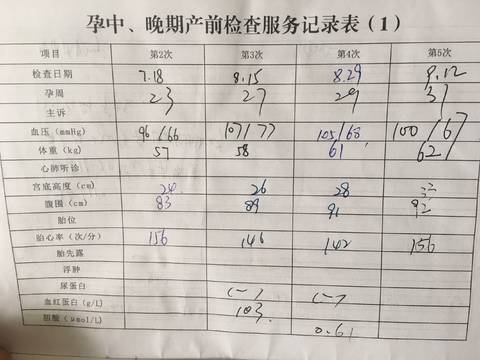 孕中、晚期产前检查服务记录表（1）
项目 第2次 第3次 第4次 第5次
检查日期 7.18 8.15 8.29 9.12
孕周 23 27 29 31
主诉
血压（mmHg） 96/66 107/77 105/68 100/67
体重（kg） 57 58 61 62
心肺听诊
宫底高度（cm） 24 26 28
腹围（cm） 83 89 91 92
胎位
胎心率（次/分） 156 146 142 156
胎先露
浮肿
尿蛋白 (-) (-)
血红蛋白（g/L） 103
胆酸（μmol/L） 0.61